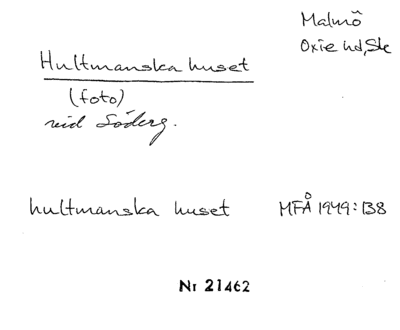 Malmö
Oxie hd, Sk
Hultmanska huset
(foto)
vid Söderg.
hultmanska huset MFÅ 1949:138
Nr 21462